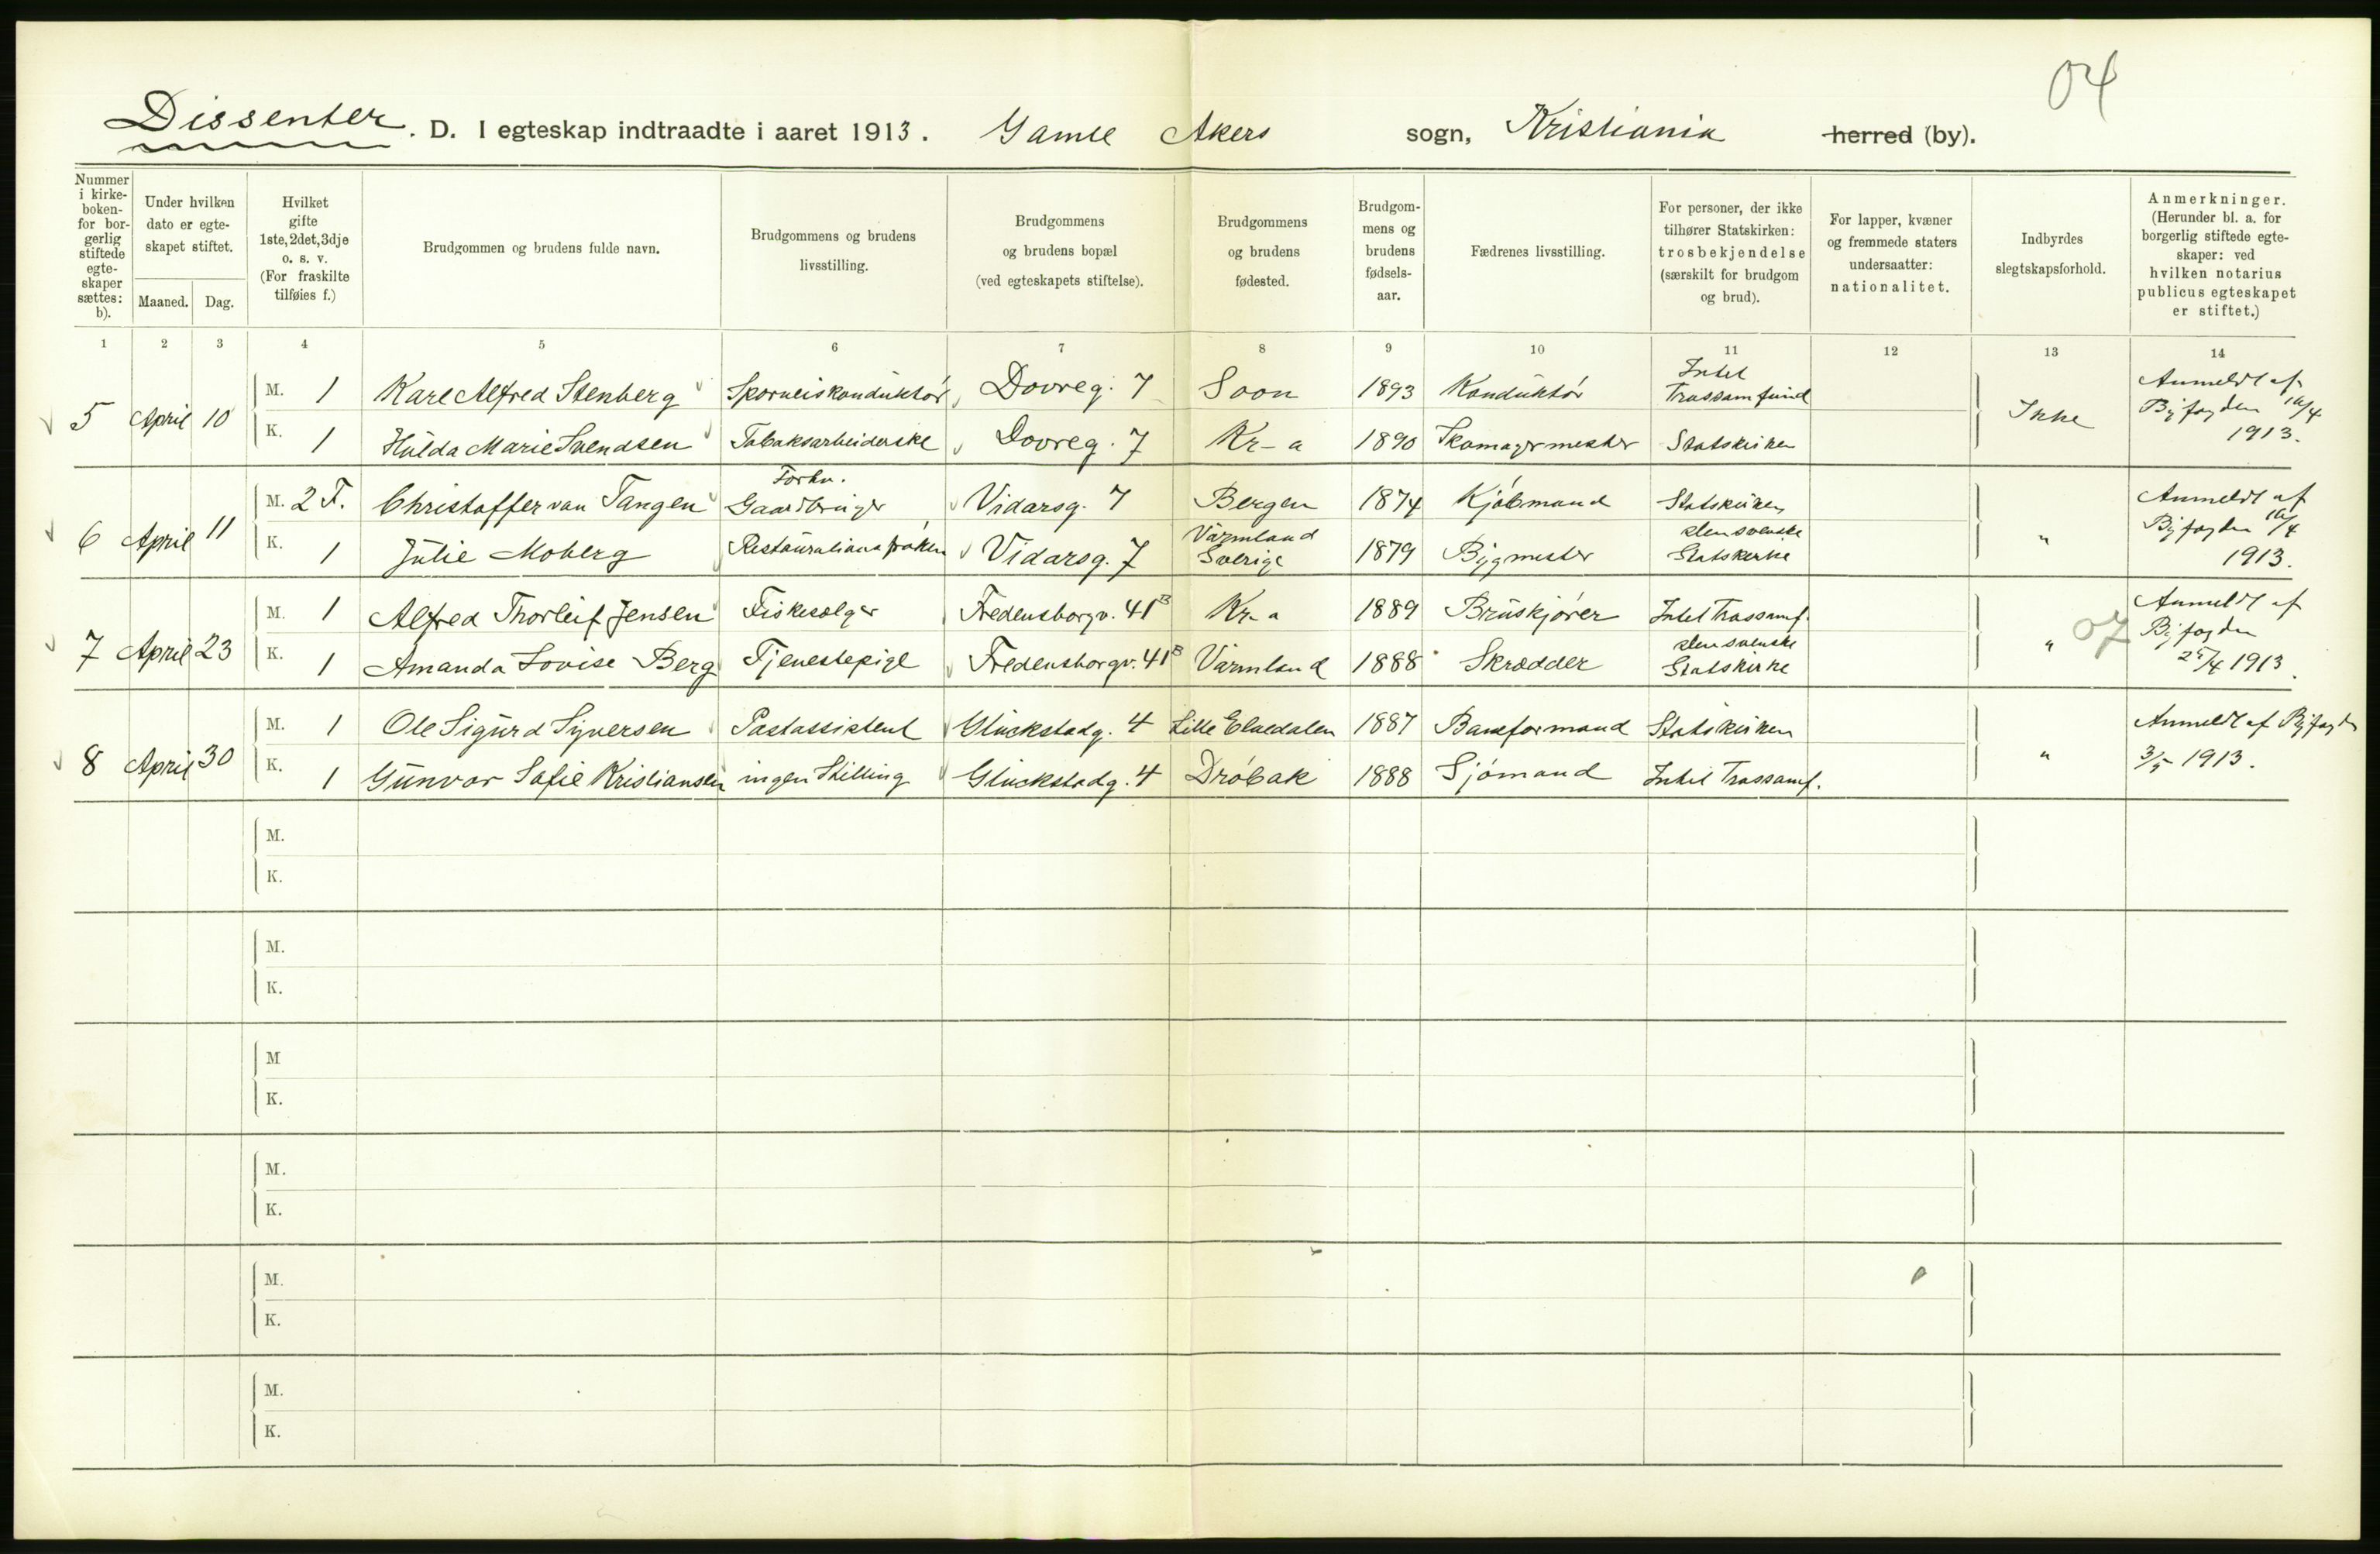 04
Dissenter. D. I egteskap indtraadte i aaret 1913. Gamle Akers sogn, Kristiania herred (by).
Nummer i kirkeboken- for borgerlig stiftede egteskaper sættes: b).
Under hvilken dato er egteskapet stiftet.
Maaned. Dag.
Hvilket gifte 1ste, 2det, 3dje o. s. v. (For fraskilte tilføies f.)
Brudgommen og brudens fulde navn.
Brudgommens og brudens livsstilling.
Brudgommens og brudens bopæl (ved egteskapets stiftelse).
Brudgommens og brudens fødested.
Brudgommens og brudens fødselsaar.
Fædrenes livsstilling.
For personer, der ikke tilhører Statskirken: trosbekjendelse (særskilt for brudgom og brud).
For lapper, kvæner og fremmede staters undersaatter: nationalitet.
Indbyrdes slegtskapsforhold.
Anmerkninger. (Herunder bl. a. for borgerlig stiftede egteskaper: ved hvilken notarius publicus egteskapet er stiftet.)
1 2 3 4 5 6 7 8 9 10 11 12 13 14
5 April 10 M. 1 Karl Alfred Stenberg Sporveiskonduktør Dovreg. 7 Soon 1893 Konduktør Intet Trossamfund Ikke Anmeldt af Byfogden 16/4 1913.
K. 1 Hulda Marie Svendsen Tobaksarbeiderske Dovreg. 7 Kr-a 1890 Skomagermester Statskirken
6 April 11 M. 2 F. Christoffer van Tangen Forhv. Gaardbruger Vidarsg. 7 Bergen 1874 Kjøbmand Statskirken " Anmeldt af Byfogden 16/4 1913.
K. 1 Julie Moberg Restaurationsfrøken Vidarsg. 7 Värmland Sverige 1879 Bygmester den svenske Statskirke
7 April 23 M. 1 Alfred Thorleif Jensen Fiskesælger Fredensborgv. 41B Kr-a 1889 Bruskjører Intet Trossamf. " 07 Anmeldt af Byfogden 25/4 1913.
K. 1 Amanda Lovise Berg Tjenestepige Fredensborgv. 41B Värmland 1888 Skrædder den svenske Statskirke
8 April 30 M. 1 Ole Sigurd Syversen Postassistent Glückstadg. 4 Lille Elvedalen 1887 Baneformand Statskirken " Anmeldt af Byfogden 3/5 1913.
K. 1 Gunvor Sofie Kristiansen ingen Stilling Glückstadg. 4 Drøbak 1888 Sjømand Intet Trossamf.
M.
K.
M.
K.
M
K.
M.
K.
M.
K.
M.
K.